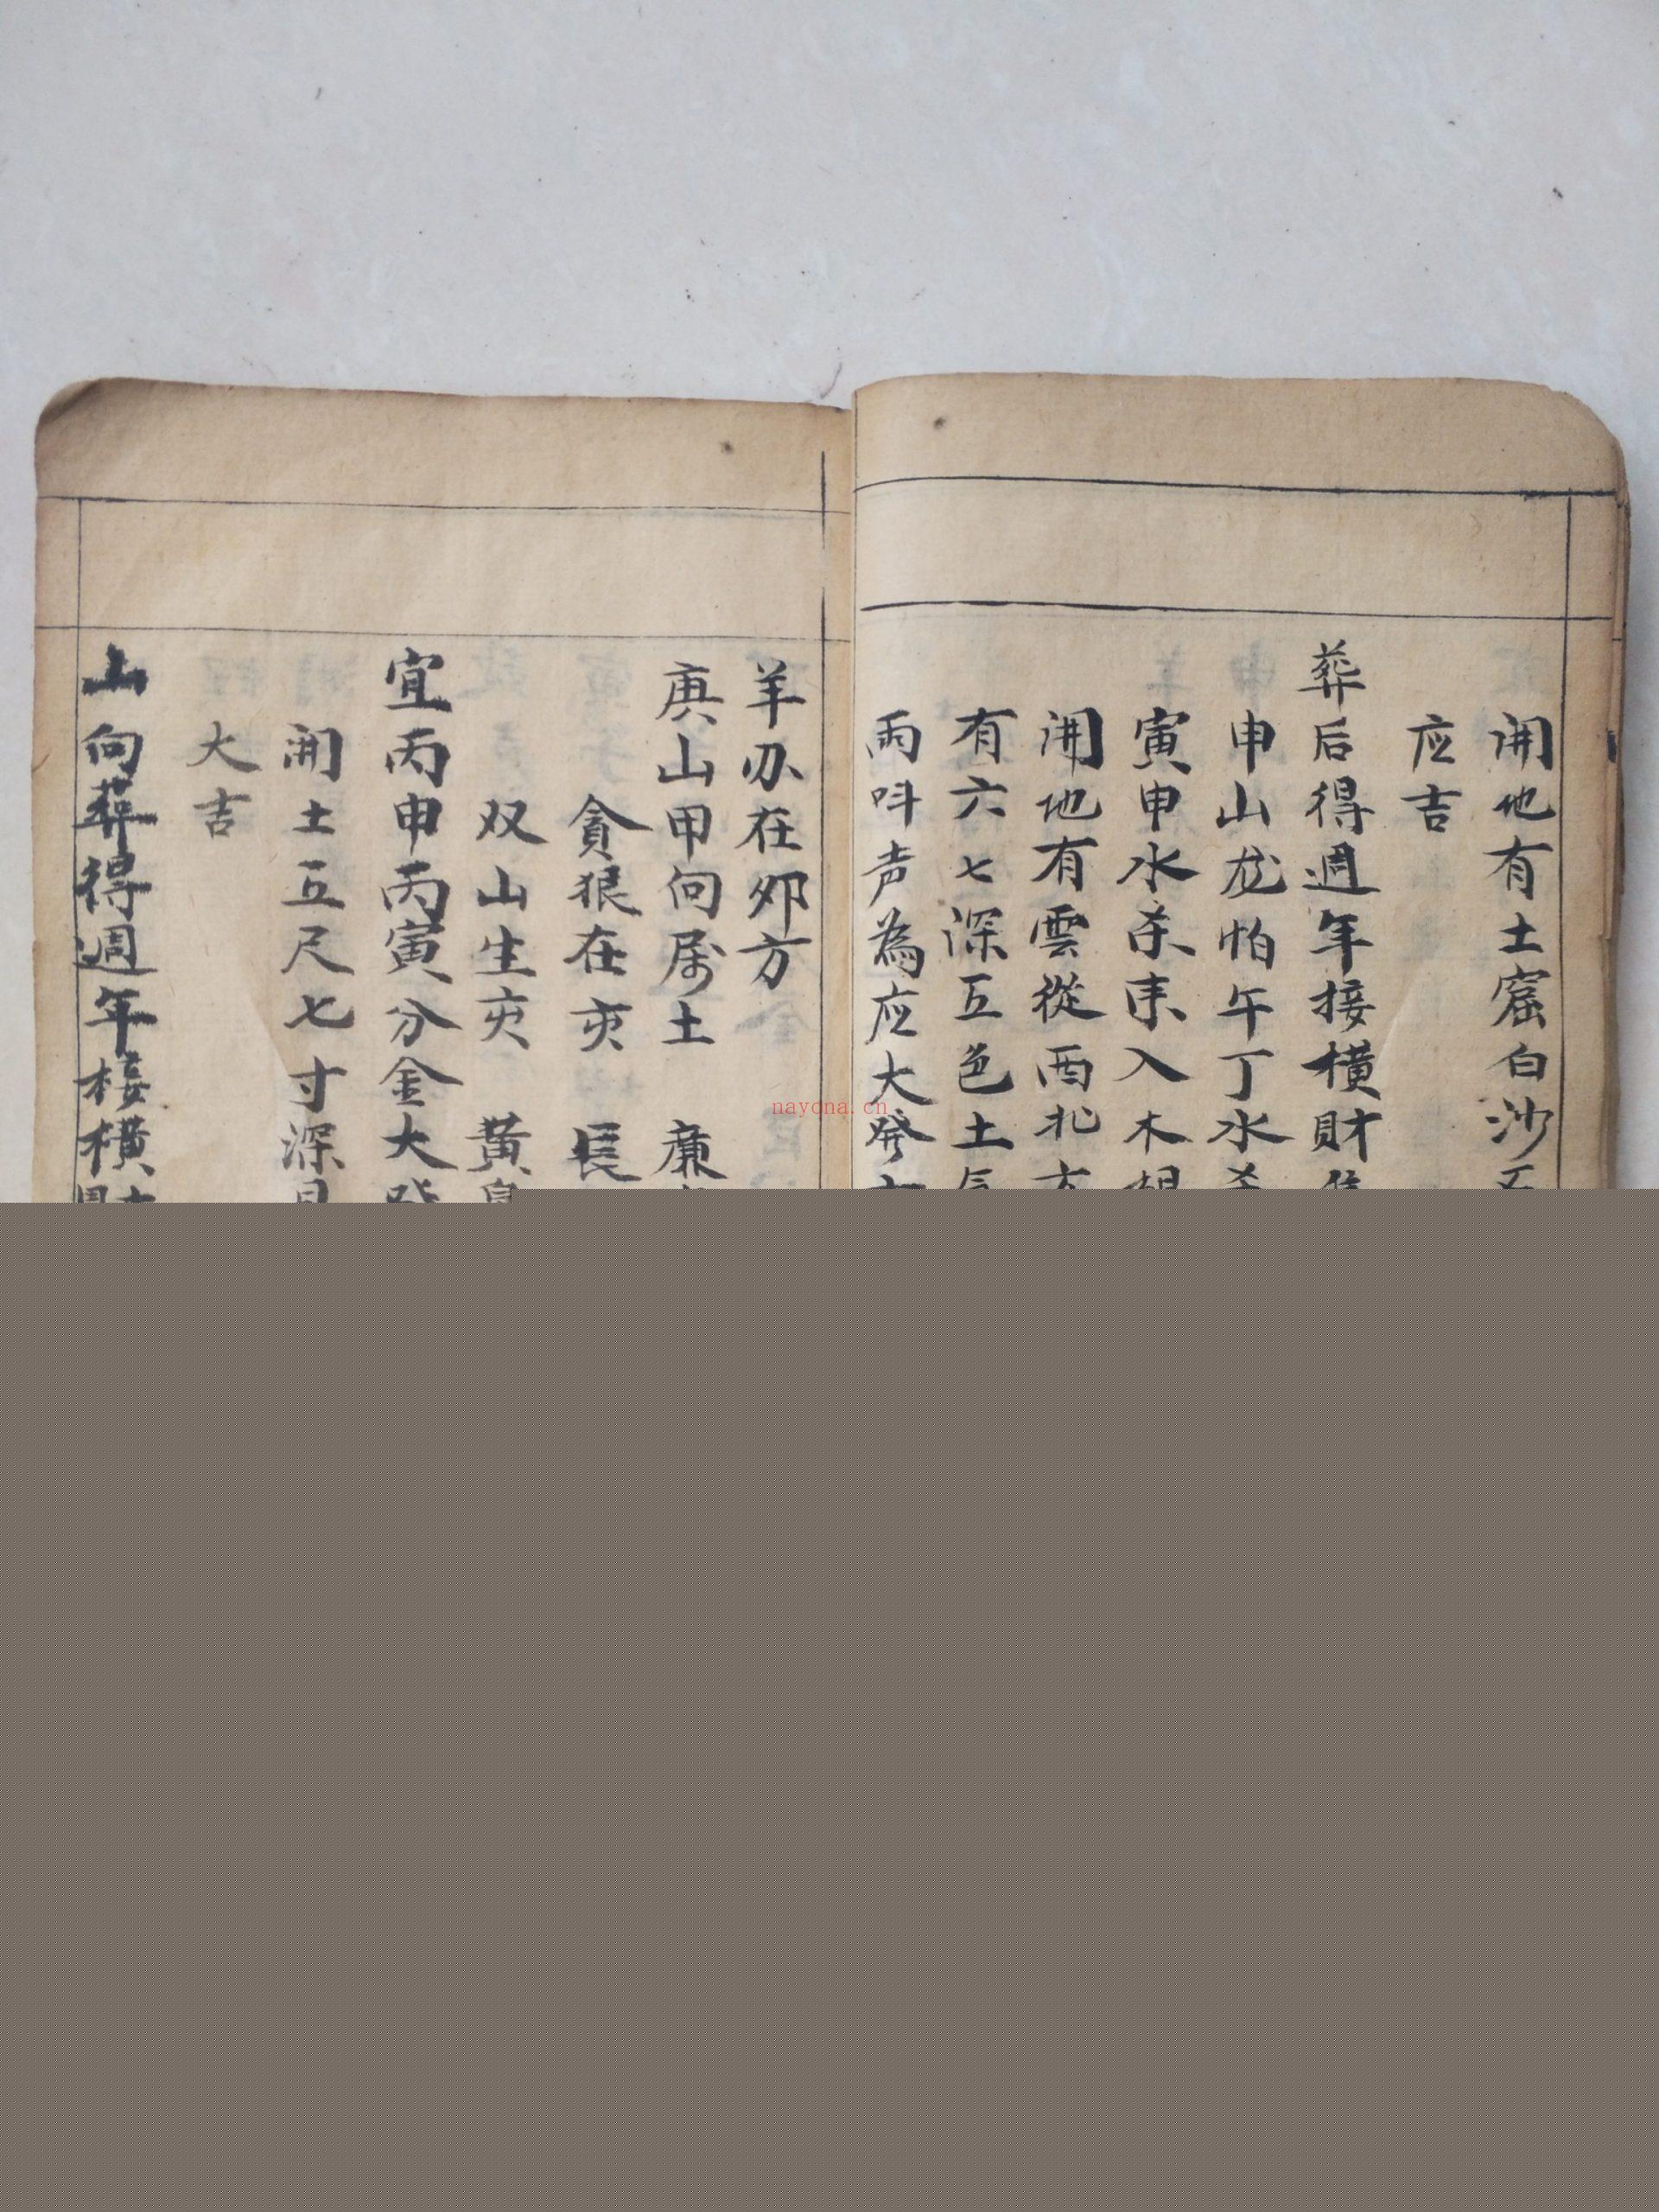 開地有土窟白沙
应吉
葬后得週年接橫財
申山龙怕午丁水杀
寅申水杀耒入木
開地有雲從西北方
有六七深五色土
雨呌声為应大発
羊刃在夘方
庚山甲向属土 廉
貪狼在亥 長
双山生亥 黃
宜丙申丙寅分金大
開土五尺七寸深
大吉
山向葬得週年接橫財
nayona.cn